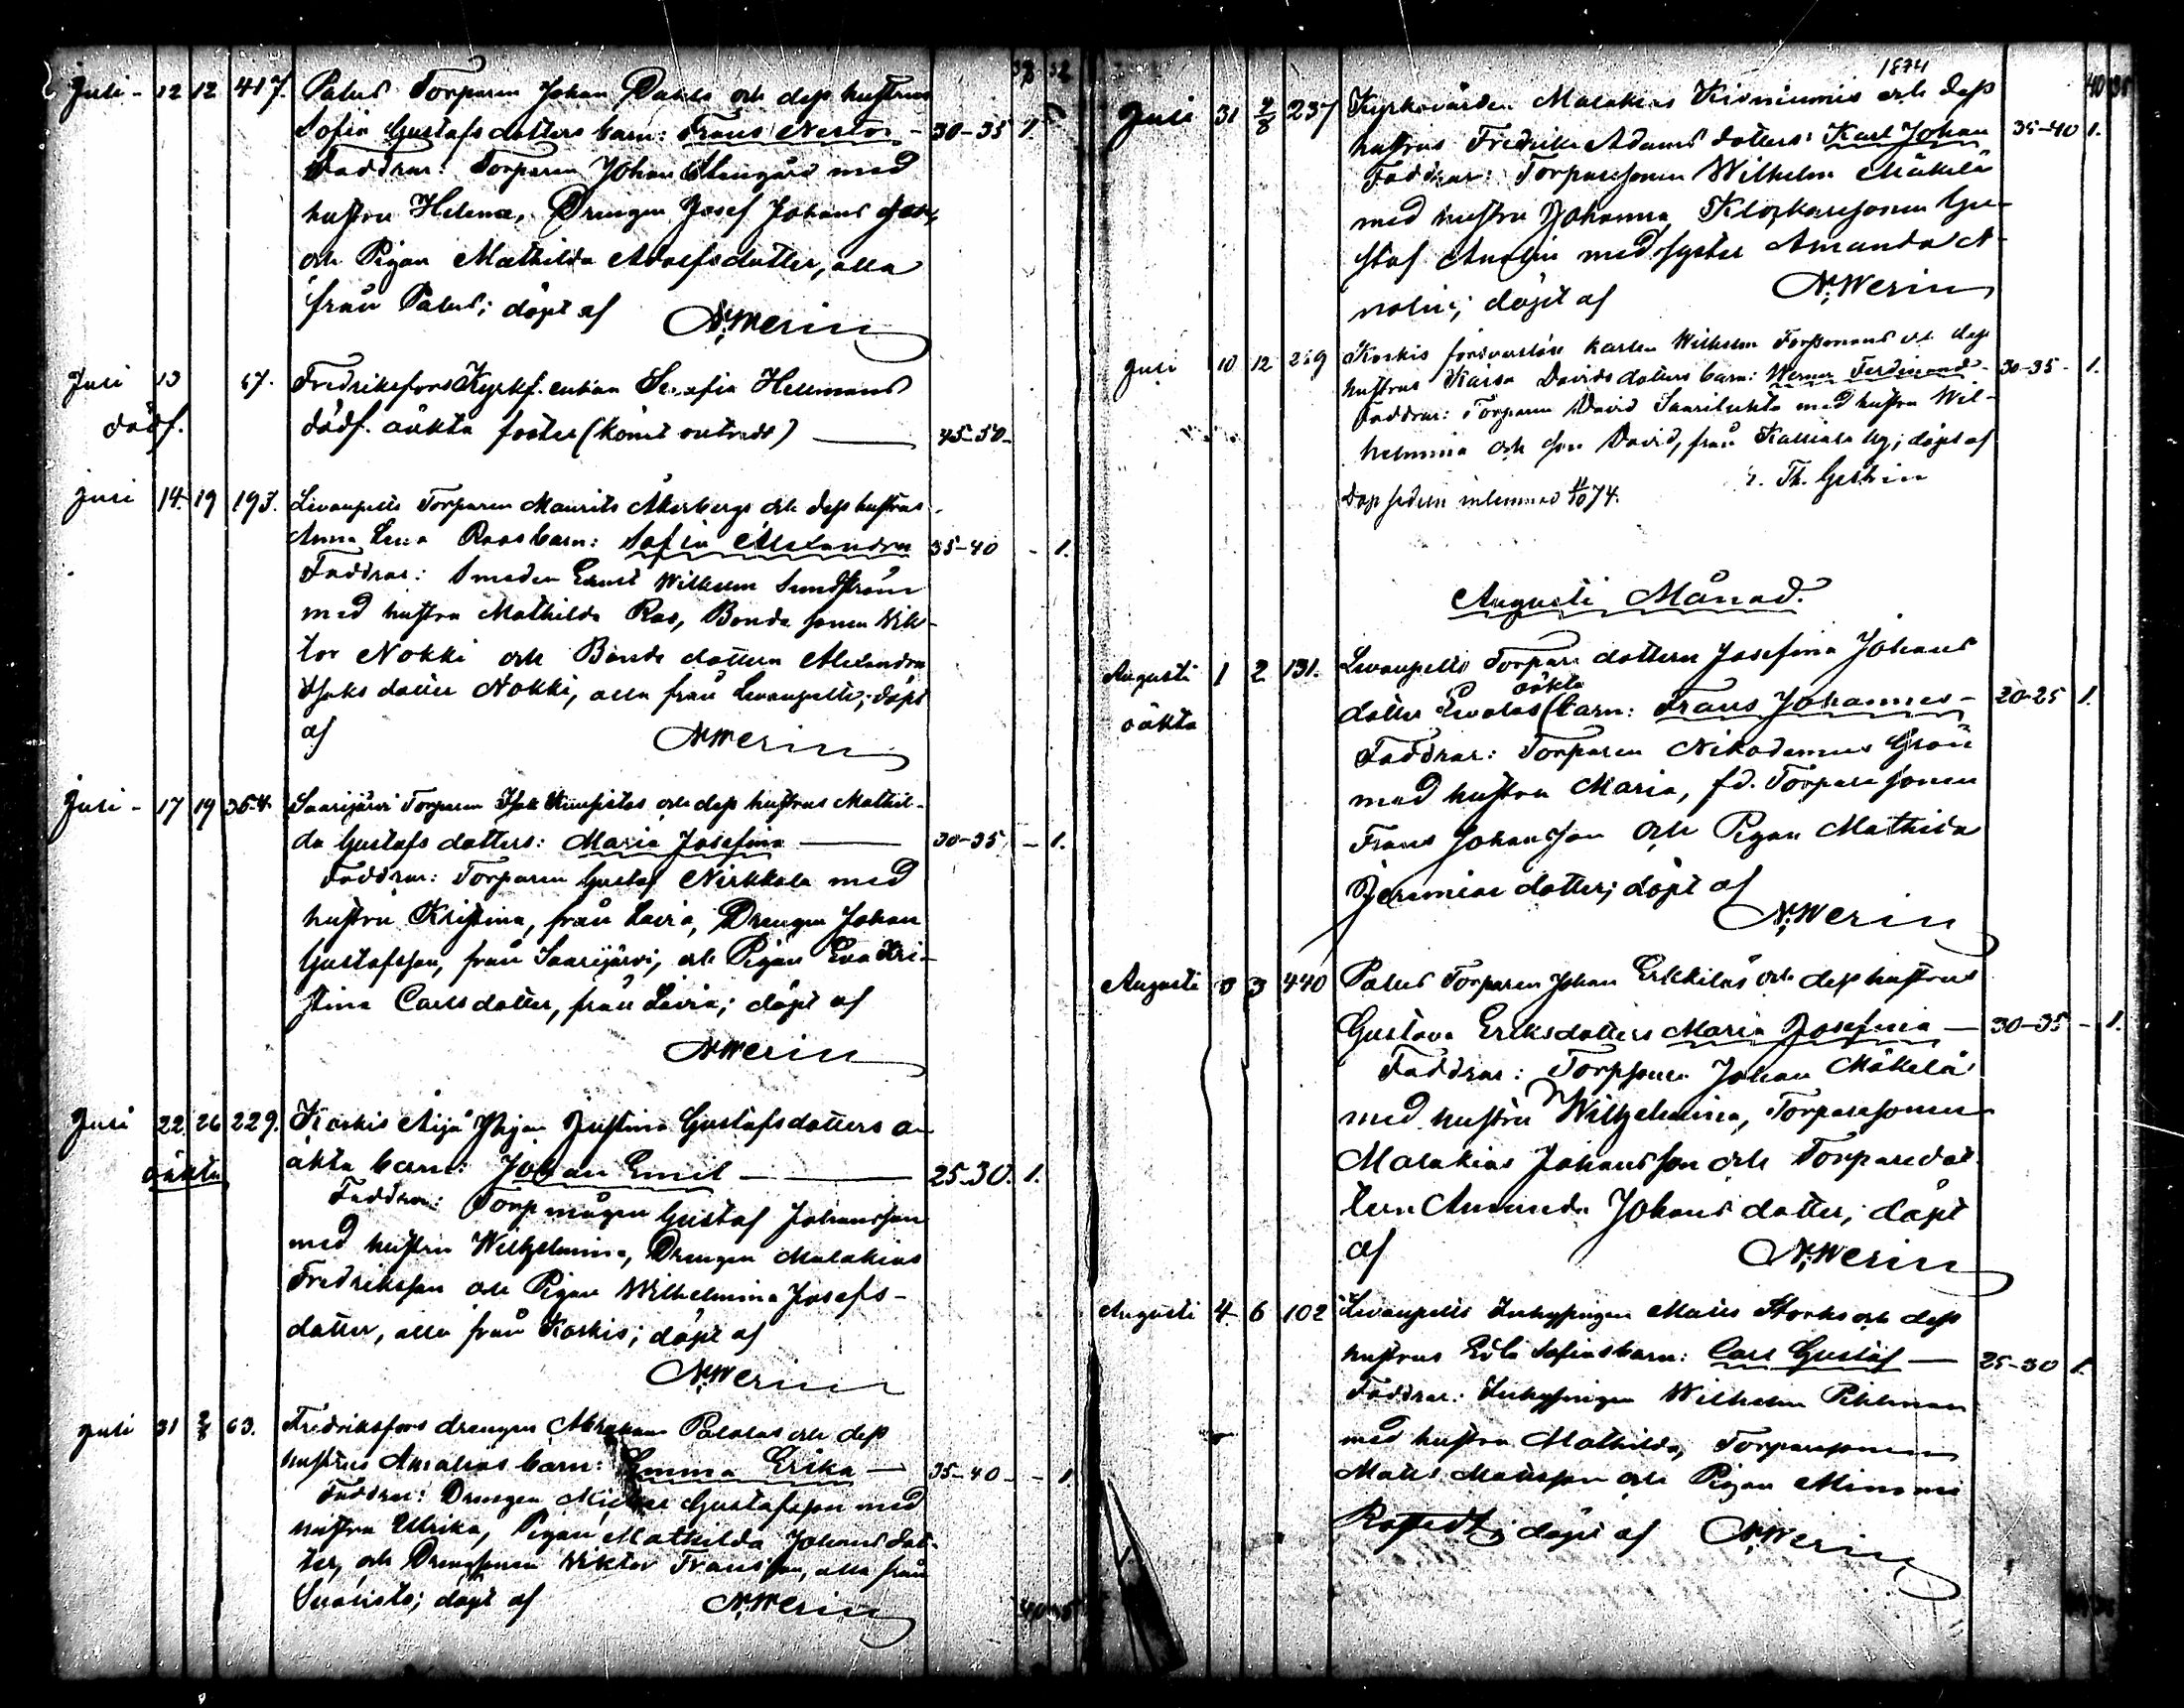 37 32
Juli - 12 12 417. Palus Torparen Johan Dahls och dess hustrus
Sofia Gustafsdotters barn: Frans Nestor - 30-35 1.
Faddrar: Torparen Johan Stengård med
hustru Helena, Drengen Josef Johansson,
och Pigan Mathilda Adolfsdotter, alla
från Palus; döpt af N. Werin
Juli 13 67. Fredriksfors Kyrkf. enkan Serafia Hellmans
dödf. dödf. oäkta foster (könet outredt) 45-50-
Juli 14. 19 193. Levanpelto Torparen Maurits Åkerbergs och dess hustrus
Anna Lena Roos barn: Sofia Alexandra 35-40 - 1.
Faddrar: Smeden Ernst Wilhelm Sundström
med hustru Mathilda Ras, Bonde sonen Wik-
tor Nokki och Bonde dottern Alexandra
Isaks dotter Nokki, alla från Levanpelto; döpt
af N. Werin
Juli - 17 19 354. Saarijärvi Torparen Isak Kuusistos och dess hustrus Mathil-
da Gustafs dotters: Maria Josefina 30-35 - 1.
Faddrar: Torparen Gustaf Nerkkala med
hustru Kristina, från Lavia, Drengen Johan
Gustafsson, från Saarijärvi, och Pigan Eva Kri-
stina Carlsdotter, från Lavia; döpt af
N. Werin
Juli 22. 26 229. Koskis Äijä Pigan Justina Gustafsdotters o-
oäkta äkta barn: Johan Emil 25-30. 1.
Faddrar: Torpmågen Gustaf Johansson
med hustru Wilhelmina, Drengen Malakias
Fredriksson och Pigan Wilhelmina Josefs-
dotter, alla från Koskis; döpt af
N. Werin
Juli 31 2/8 63. Fredriksfors drengen Abraham Palolas och dess
hustrus Amalias barn: Emma Erika - 35-40 - - 1
Faddrar: Drengen Mickel Gustafsson med
hustru Ulrika, Pigan Mathilda Johansdot-
ter, och Drengsonen Wiktor Fransson, alla från
Suoristo; döpt af N. Werin
1874
Juli 31 2/8 237 Kyrkovärden Malakias Kivniemis och dess
hustrus Fredrika Adams dotters: Karl Johan 35-40 1.
Faddrar: Torparesonen Wilhelm Mäkelä
med hustru Johanna, Klockaresonen Gu-
staf Anolin med syster Amanda A-
nolin; döpt af N. Werin
Juli 10 12 229 Koskis försvarslöse karlen Wilhelm Forsmans och dess
hustrus Kaisa Davidsdotters barn: Werner Ferdinand - 30-35 - 1.
Faddrar: Torparen David Saariluhta med hustru Wil-
helmina och son David, från Kalliala by; döpt af
Th. Gestrin
Dop sedeln inlemnad 11/10 74.
Augusti Månad.
Augusti 1 2 131. Levanpelto Torpare dottern Josefina Johans
oäkta dotter Evalas oäkta barn: Frans Johannes - 20-25 1.
Faddrar: Torparen Nikodemus Grön
med hustru Maria, fd. Torpare sonen
Frans Johansson och Pigan Mathilda
Jeremiae dotter; döpt af
N. Werin
Augusti 3 3 440 Palus Torparen Johan Erkkiläs och dess hustrus
Gustava Eriksdotters Maria Josefina - 30-35 - 1.
Faddrar: Torpsonen Johan Mäkelä
med hustru Wilhelmina, Torparesonen
Malakias Johansson och Torparedot-
tern Amanda Johans dotter; döpt
af N. Werin
Augusti 4 6 102 Levanpelto Inhysingen Matts Storks och dess
hustrus Eda Sofias barn: Carl Gustaf - 25-30 1.
Faddrar: Inhysingen Wilhelm Pihlman
med hustru Mathilda, Torparesonen
Matts Mattsson och Pigan Minna
Rostedt; döpt af N. Werin